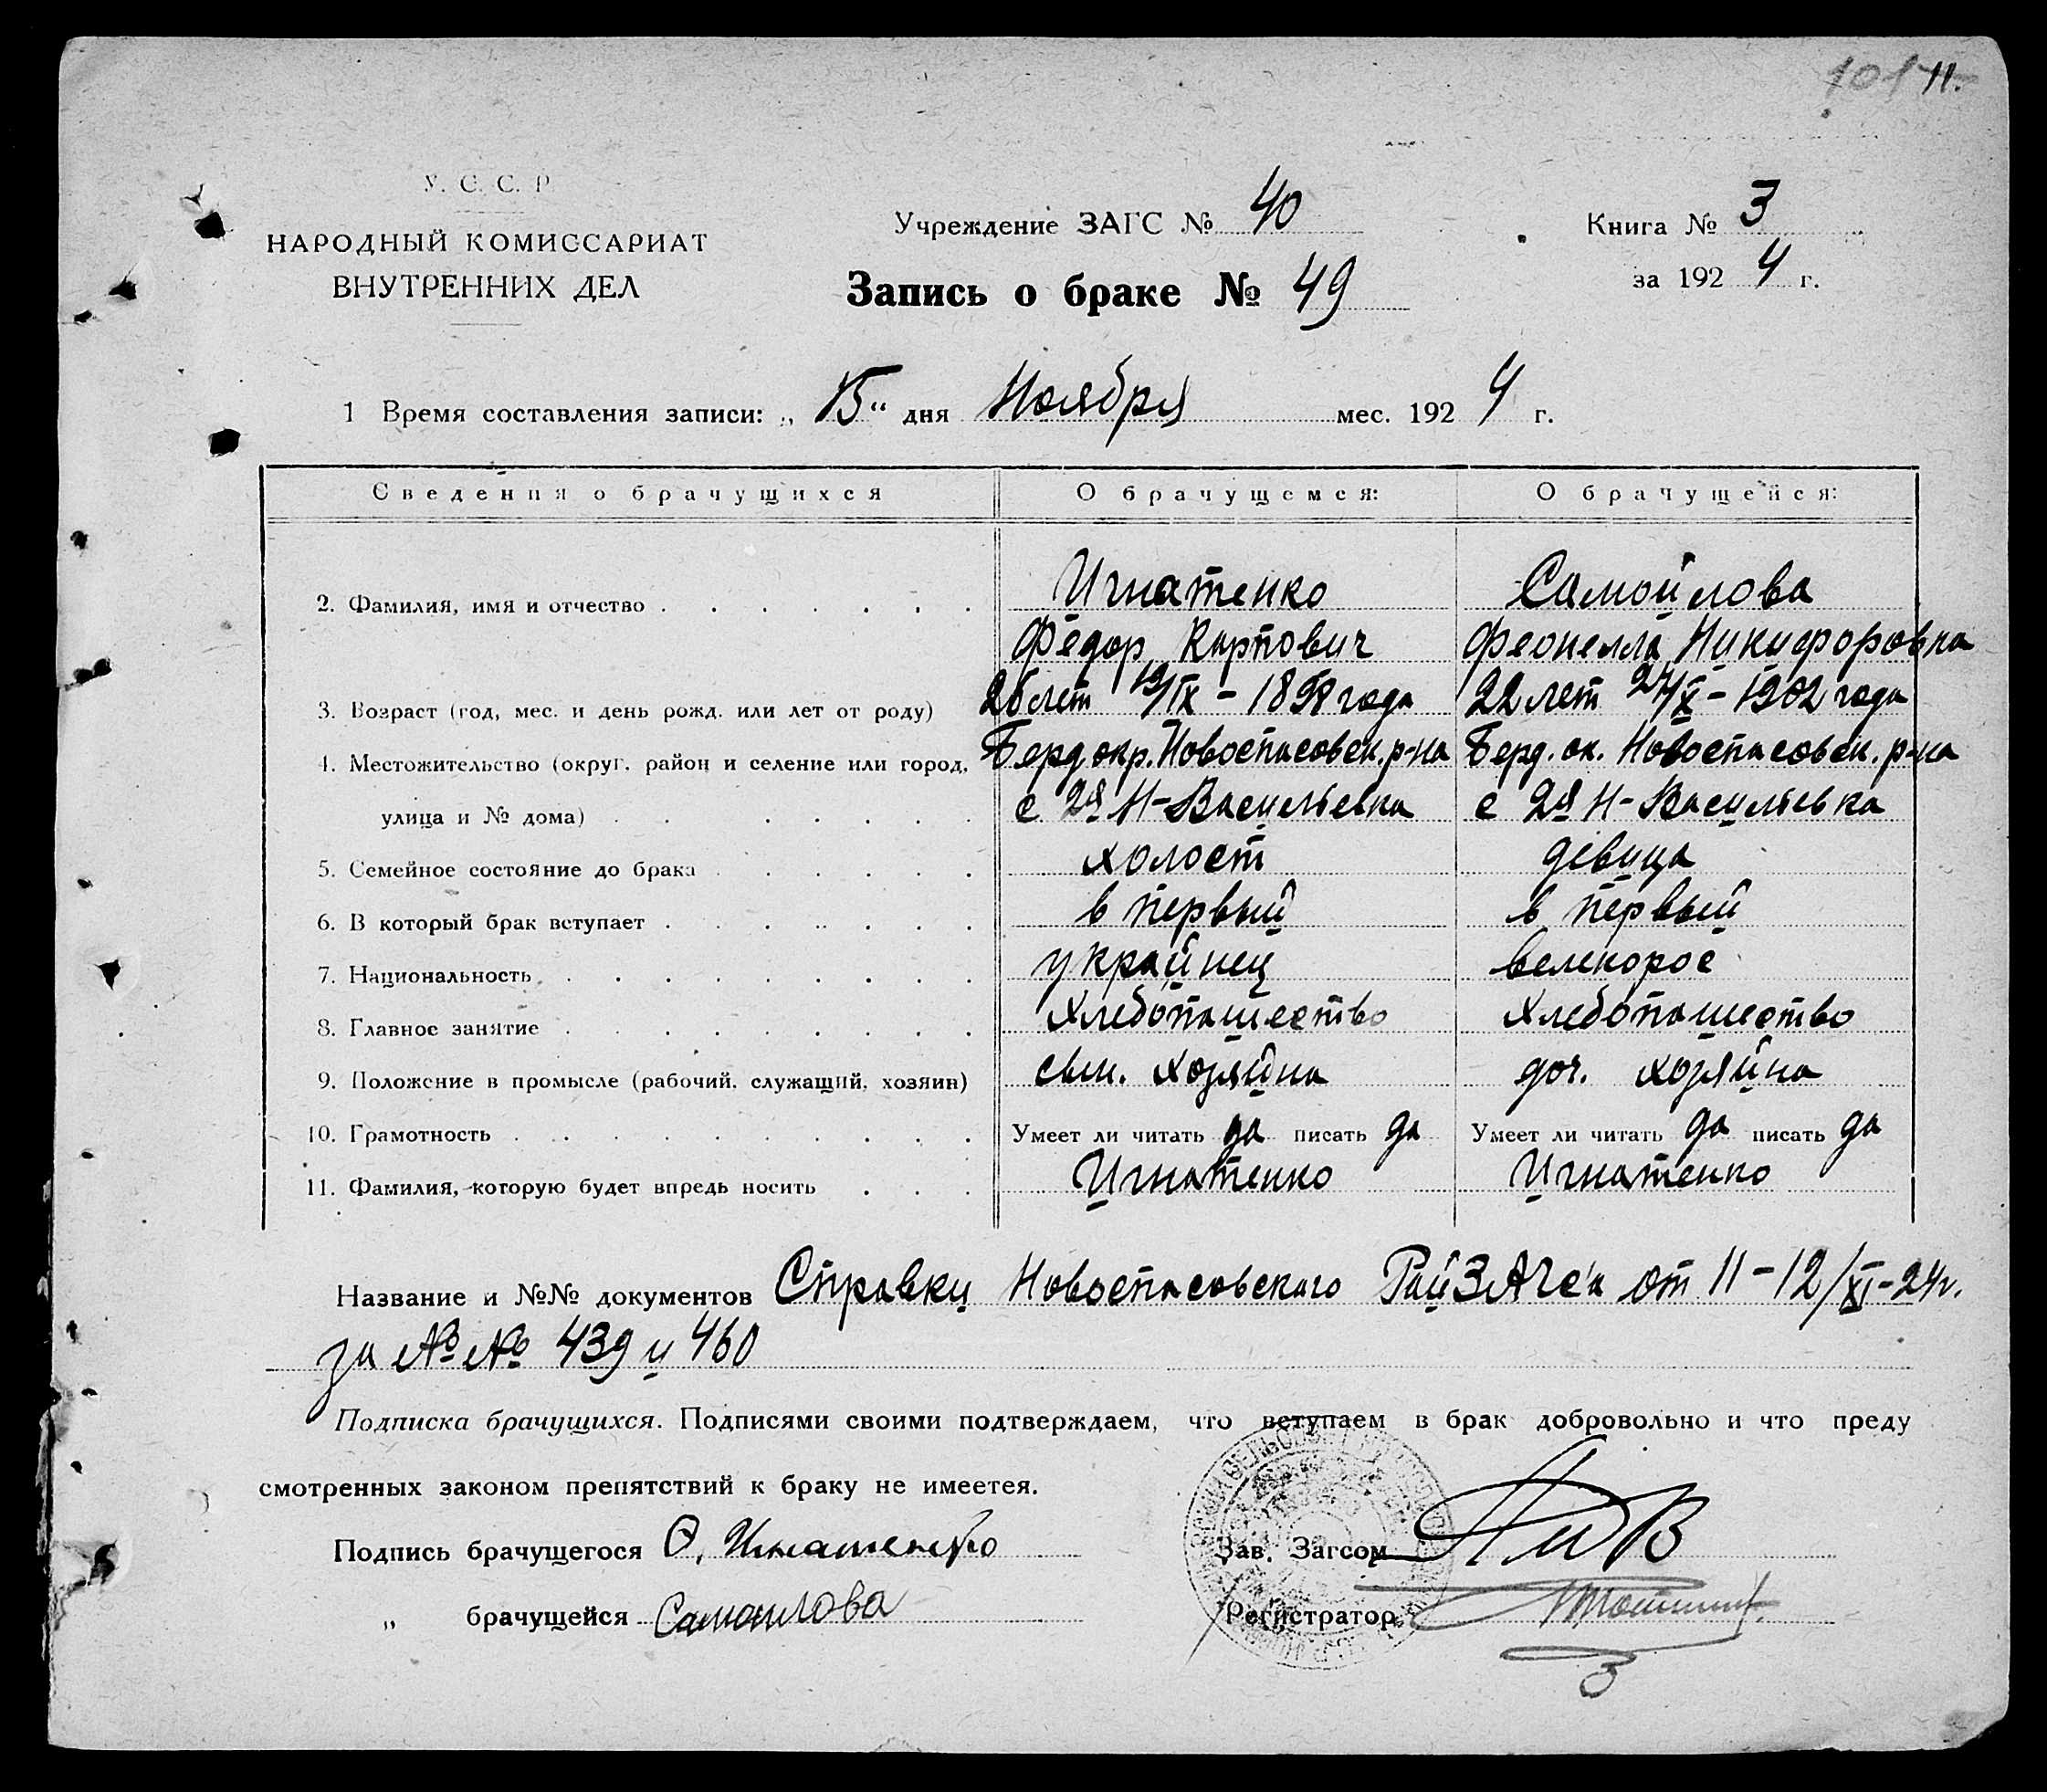 11.
У. С. С. Р
НАРОДНЫЙ КОМИССАРИАТ
ВНУТРЕННИХ ДЕЛ
Учреждение ЗАГС № 40
Запись о браке № 49
Книга № 3
за 1924 г.
1 Время составления записи: „15“ дня Ноября мес. 1924 г.
Сведения о брачущихся О брачущемся: О брачущейся:
2. Фамилия, имя и отчество Игнатенко Самойлова
Федор Карпович Феонелла Никифоровна
3. Возраст (год, мес. и день рожд. или лет от роду) 26 лет 19/IX - 1898 года 22 лет 24/X - 1902 года
4. Местожительство (округ, район и селение или город, Берд. окр. Новоспасовск. р-на Берд. ок. Новоспасовск. р-на
улица и № дома) с 2я Н-Васильевка с 2я Н-Васильевка
5. Семейное состояние до брака холост девица
6. В который брак вступает в первый в первый
7. Национальность украйнец велекорос
8. Главное занятие хлебопашество хлебопашество
9. Положение в промысле (рабочий, служащий, хозяин) сын. хозяйна доч. хозяйна
10. Грамотность Умеет ли читать да писать да Умеет ли читать да писать да
11. Фамилия, которую будет впредь носить Игнатенко Игнатенко
Название и №№ документов Справки Новоспасовского РайЗАГС'а от 11-12/XI-24г.
за №№ 439 и 460
Подписка брачущихся. Подписями своими подтверждаем, что вступаем в брак добровольно и что преду
смотренных законом препятствий к браку не имеется.
Подпись брачущегося Ф. Игнатенко
Зав. Загсом
„ брачущейся Самоилова
Регистратор